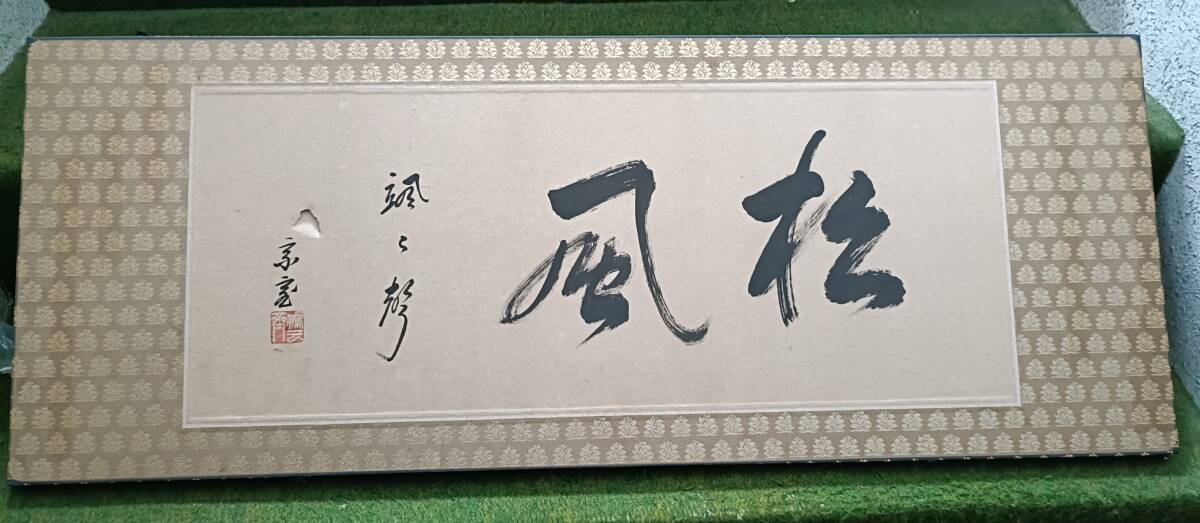 松風
颯々聲
宗室